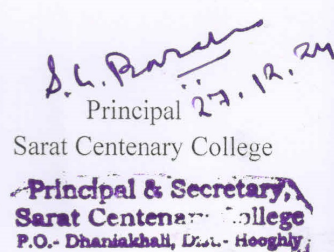 27.12.24
Principal
Sarat Centenary College
Principal & Secretary,
Sarat Centenary College
P.O.- Dhaniakhali, Dist.- Hooghly